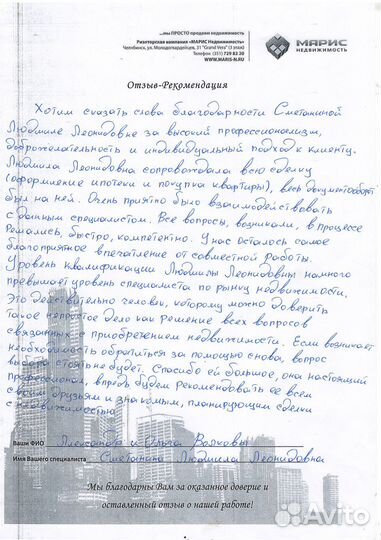 ...мы ПРОСТО продаем недвижимость
Риэлторская компания «МАРИС Недвижимость»
Челябинск, ул. Молодогвардейцев, 31 "Grand Vera" (3 этаж)
Телефон: (351) 729 83 20
WWW.MARIS-N.RU
МАРИС
НЕДВИЖИМОСТЬ
Отзыв-Рекомендация
Хотим сказать слова благодарности Сметаниной
Людмиле Леонидовне за высокий профессионализм,
доброжелательность и индивидуальный подход к клиенту.
Людмила Леонидовна сопровождала всю сделку
(оформление ипотеки и покупка квартиры), весь документооборот
был на ней. Очень приятно было взаимодействовать
с данным специалистом. Все вопросы, возникали, в процессе
решались, быстро, компетентно. У нас осталось самое
благоприятное впечатление от совместной работы.
Уровень квалификации Людмилы Леонидовны намного
превышает уровень специалиста по рынку недвижимости.
Это действительно человек, которому можно доверить
такое непростое дело как решение всех вопросов
связанных с приобретением недвижимости. Если возникает
необходимость обратиться за помощью снова, вопрос
выбора стоять не будет. Спасибо ей большое, она настоящий
профессионал, впредь будем рекомендовать ее всем
своим друзьям и знакомым, планирующим сделки
с недвижимостью
Ваши ФИО Александр и Ольга Волковы
Имя Вашего специалиста Сметанина Людмила Леонидовна
Мы благодарны Вам за оказанное доверие и
оставленный отзыв о нашей работе!
Avito